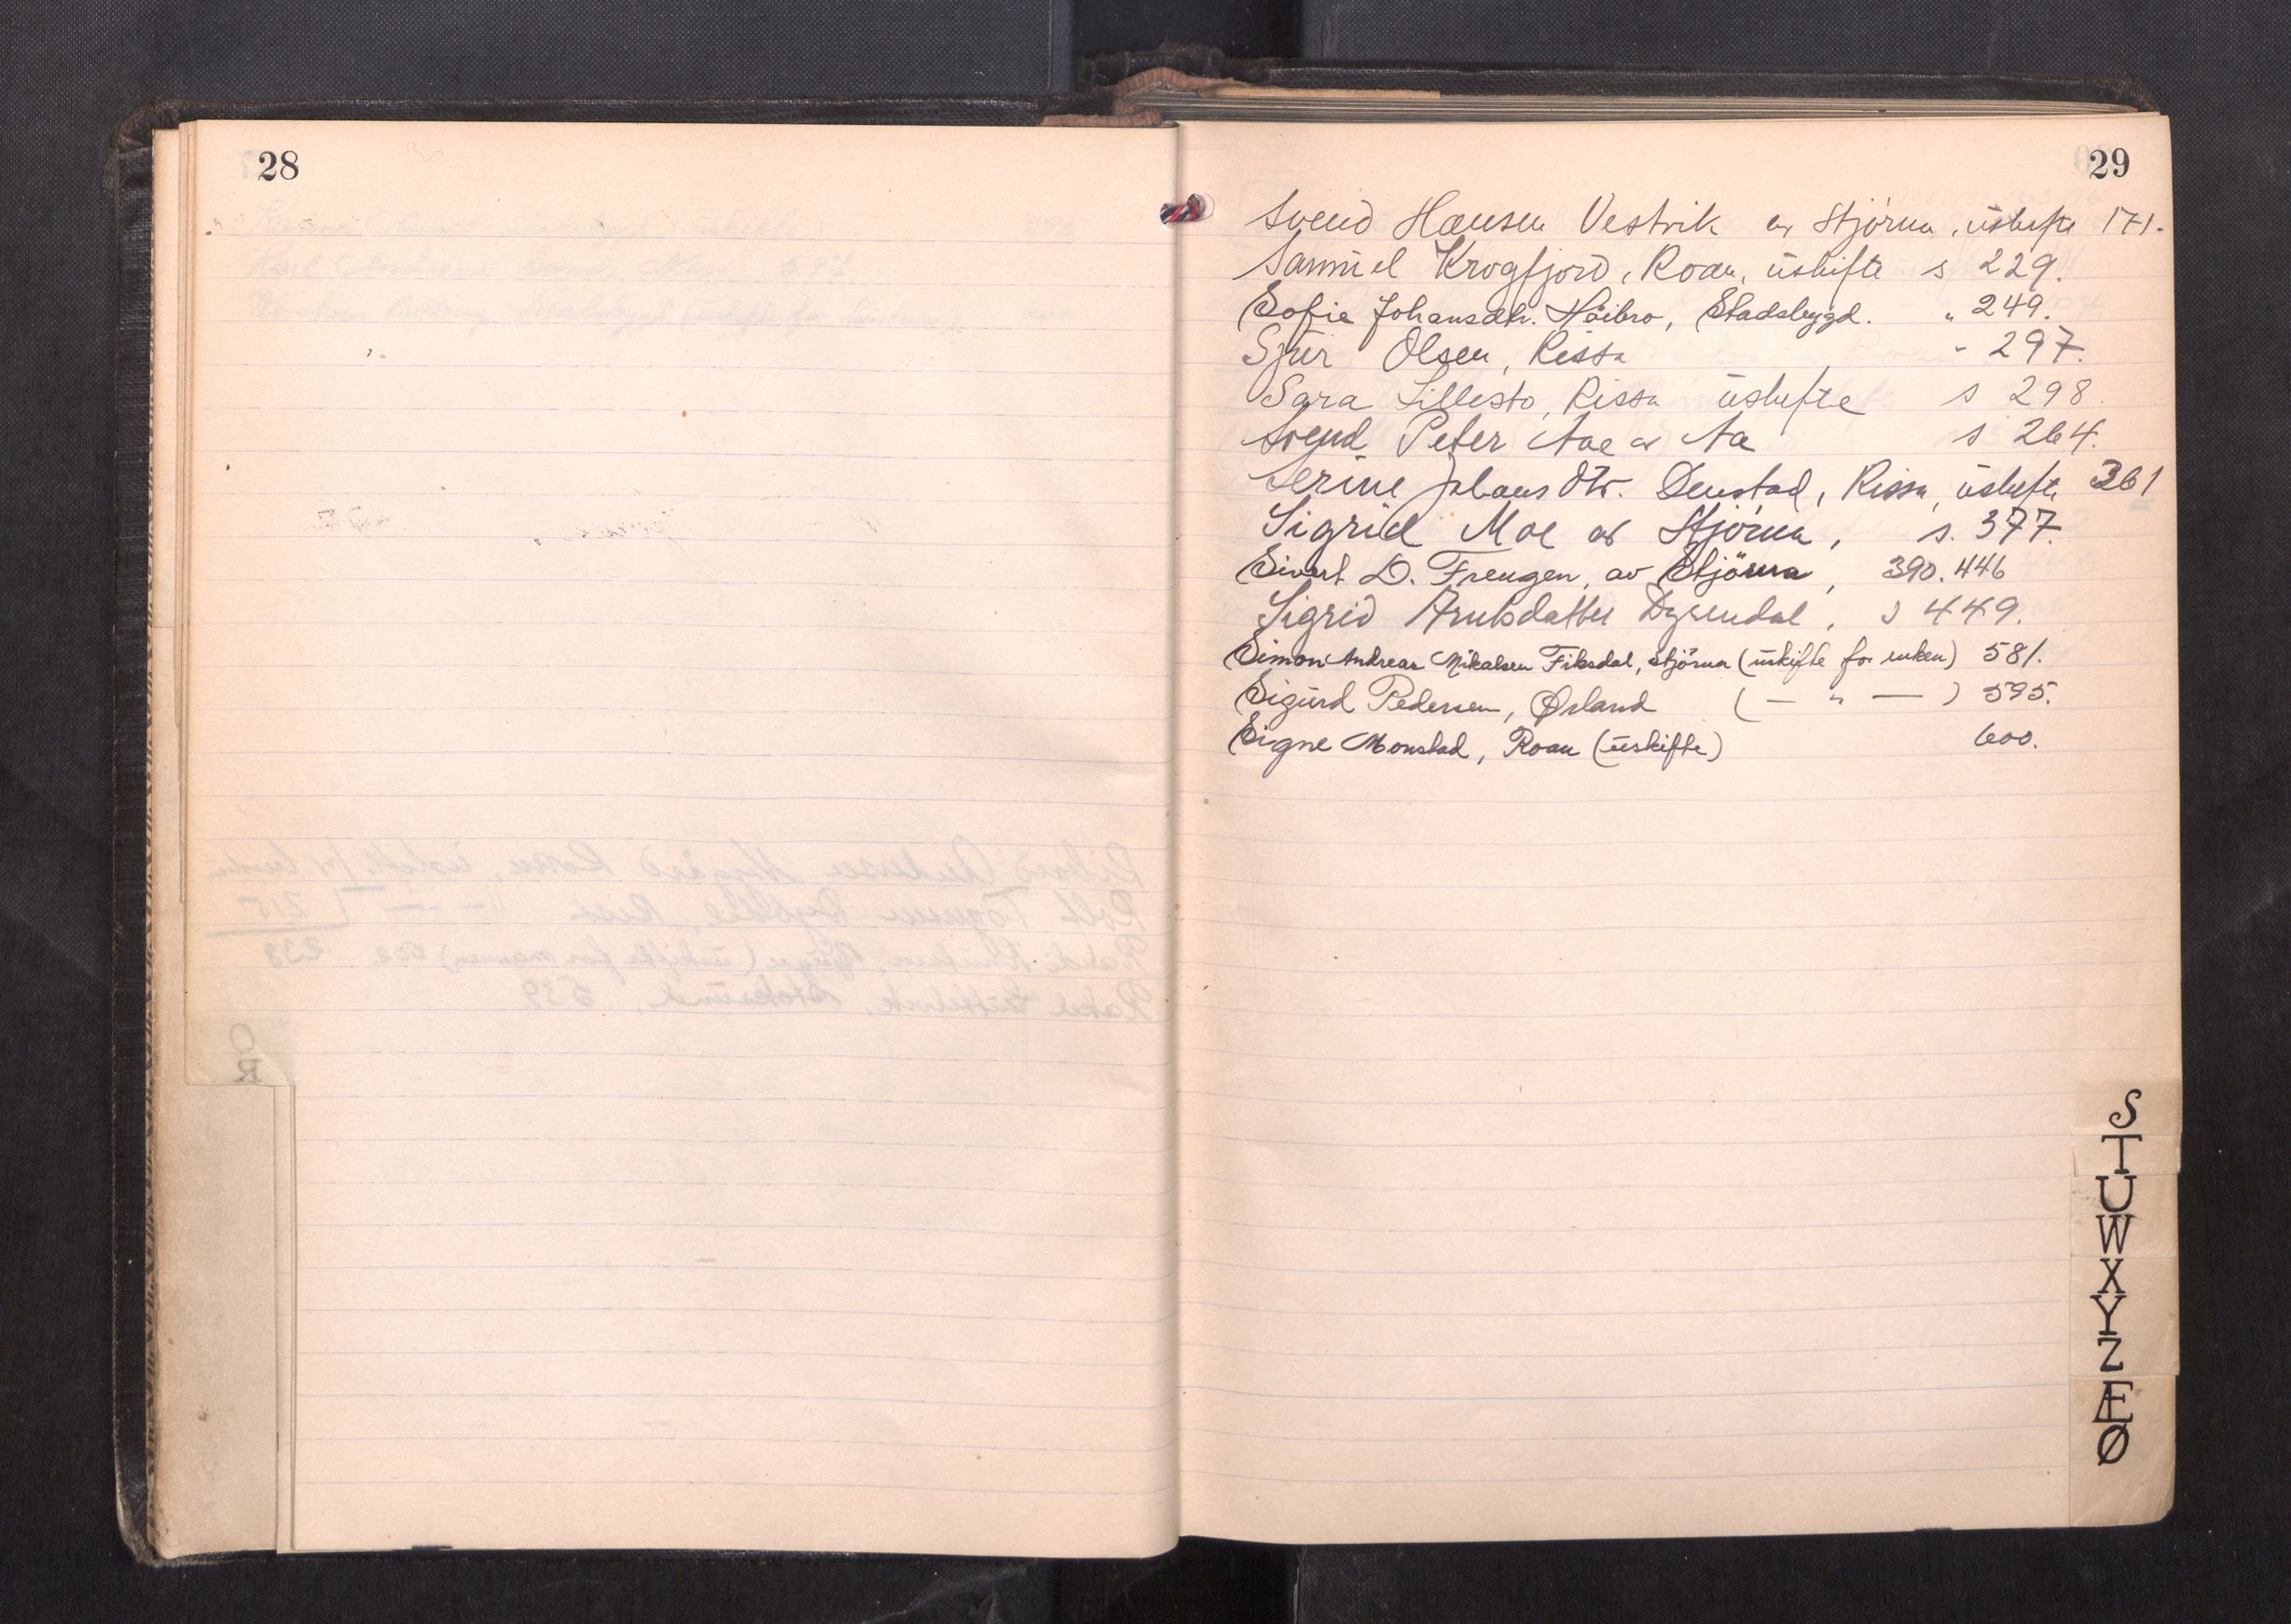 28
29
Svend Hansen Vestvik av Stjörna, uskifte 171.
Samuel Krogfjord, Roan, uskifte s 229.
Sofie Johansdtr. Höibro, Stadsbygd. " 249.
Sjur Olsen, Rissa - 297.
Sara Lillesto, Rissa uskifte s 298.
Svend Peter Aae av Aa s 264.
Serine Johansdtr. Denstad, Rissa, uskifte 361
Sigrid Moe av Stjörna, s. 377.
Sivert D. Frengen, av Stjörna, 390. 446
Sigrid Arntsdatter Dyrendal, s 449.
Simon Andreas Mikalsen Fiksdal, Stjörna (uskifte for enken) 581.
Sigurd Pedersen, Ørland ( — " — ) 595.
Signe Monstad, Roan (uskifte) 600.
S
T
U
W
X
Y
Z
Æ
Ø